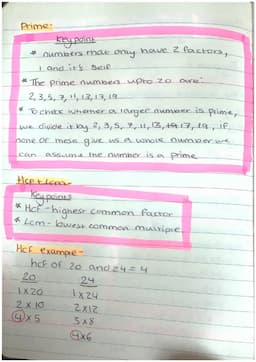 Prime:
Key point
* numbers that only have 2 factors,
1 and it's self
* The prime numbers upto 20 are:
2, 3, 5, 7, 11, 13, 17, 19
* To check whether a larger number is prime,
we divide it by 2, 3, 5, 7, 11, 13, 17, 19, if
none of these give us a whole number we
can assume the number is a prime
Hcf + Lcm:
Key points
* Hcf - highest common factor
* Lcm - lowest common multiple
Hcf example -
hcf of 20 and 24 = 4
20 24
1 x 20 1 x 24
2 x 10 2 x 12
4 x 5 3 x 8
4 x 6